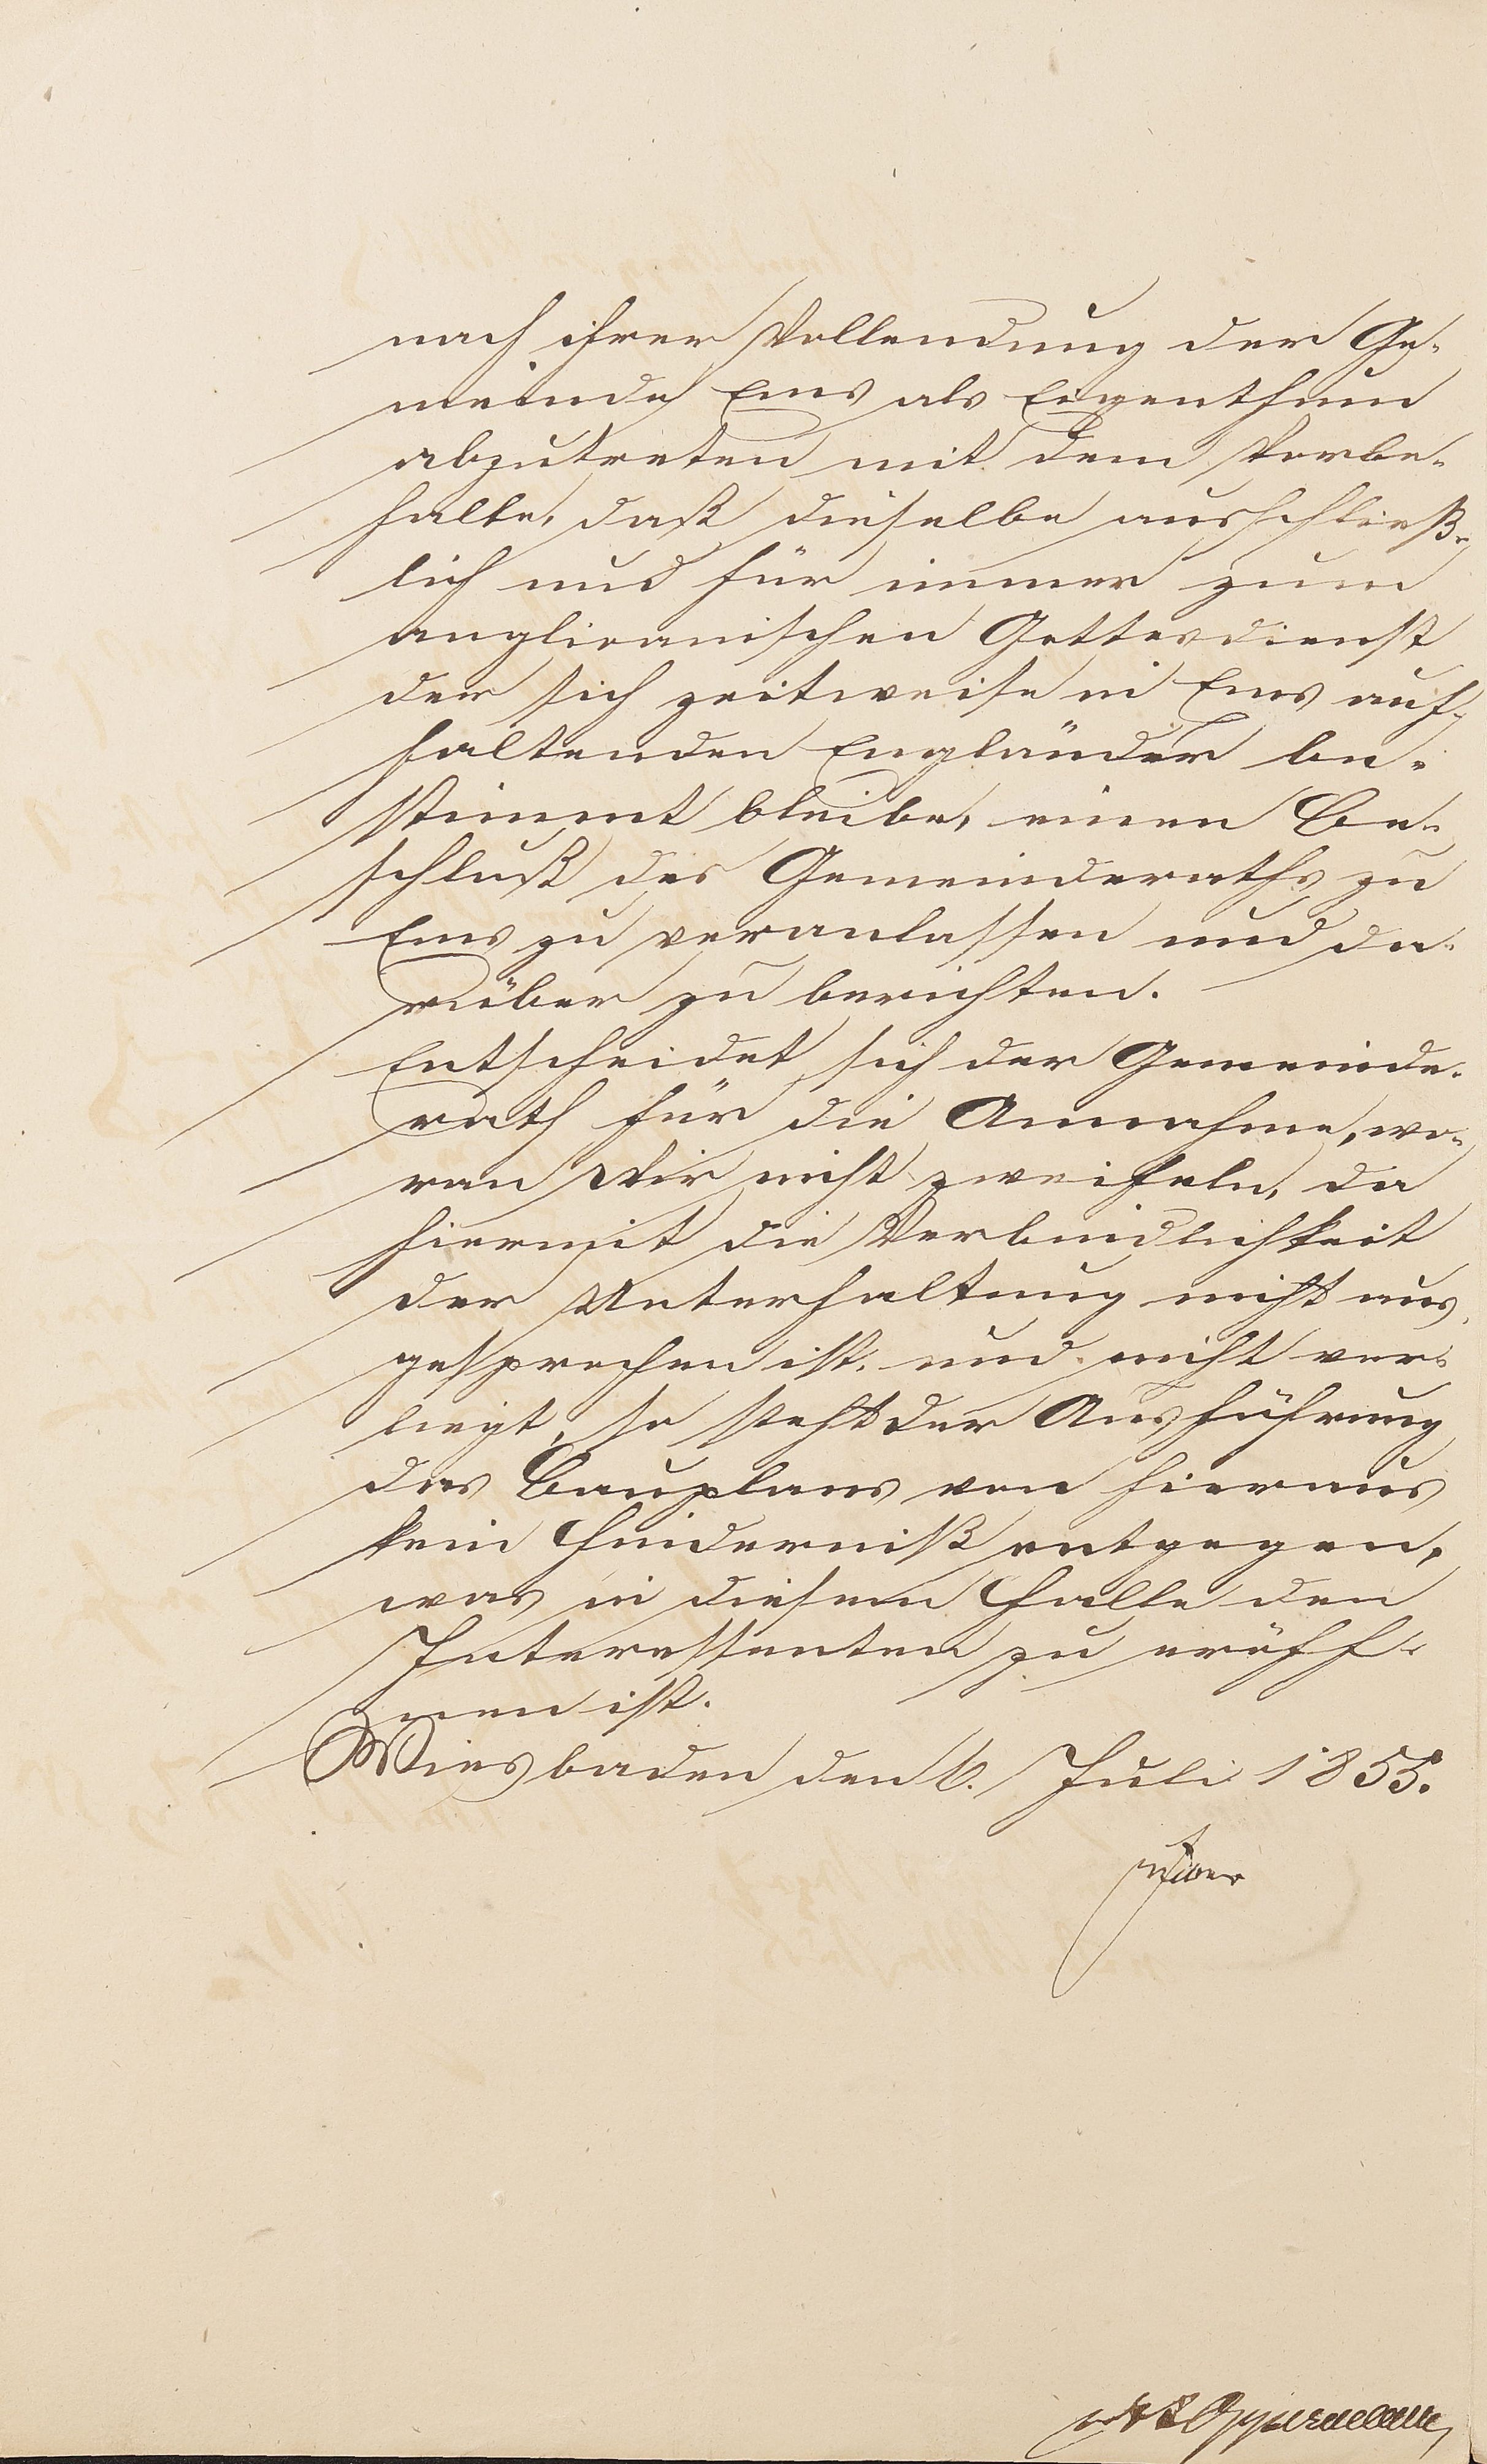 nach ihrer Vollendung der Ge-
meinde Ems als Eigenthum
abzutreten mit dem Vorbe-
halte, daß dieselbe ausschließ-
lich und für immer zum
anglicanischen Gottesdienst
der sich zeitweise in Ems auf-
haltenden Engländer be-
stimmt bleibe, einen Be-
schluß des Gemeinderaths zu
Ems zu veranlassen und da-
rüber zu berichten.
Entscheidet sich der Gemeinde-
rath für die Annahme, wo-
ran Wir nicht zweifeln, da
hiermit die Verbindlichkeit
der Unterhaltung nicht aus-
gesprochen ist und nicht vor-
liegt, so steht der Ausführung
des Bauplans von hieraus
kein Hinderniß entgegen,
was in diesem Falle den
Interessenten zu eröff-
nen ist.
Wiesbaden den 6. Juli 1855.